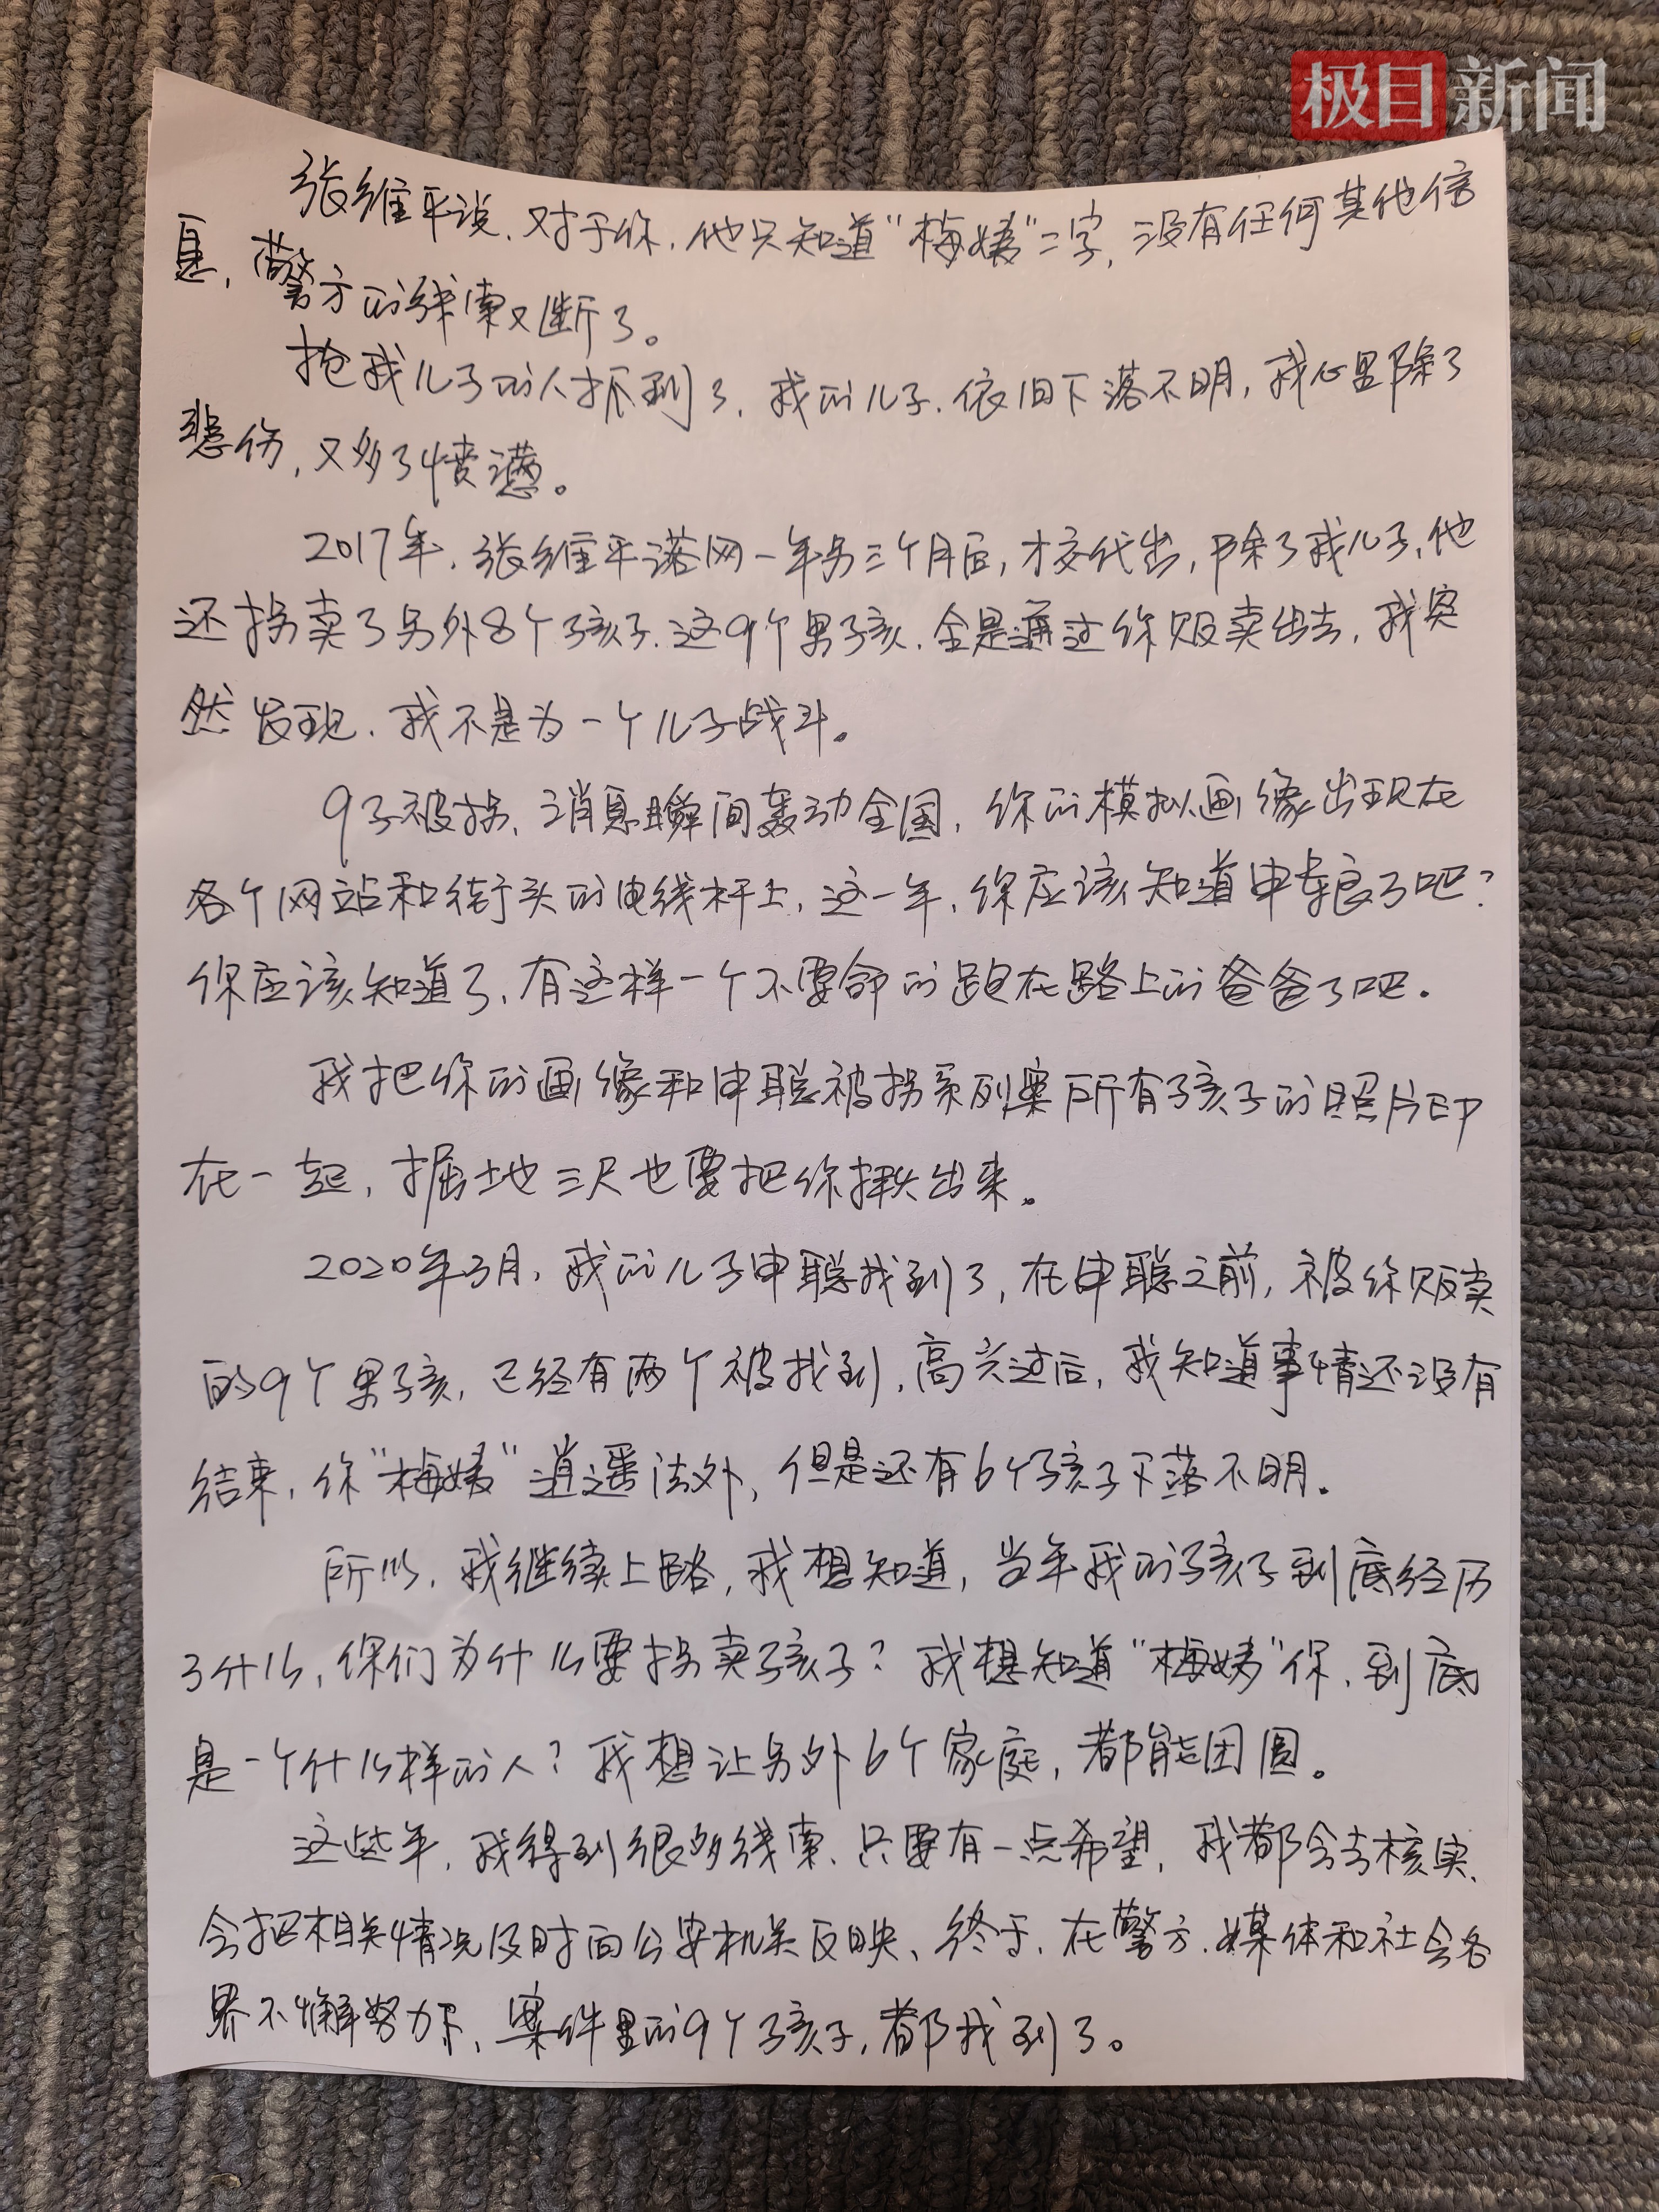 极目新闻
张维平说,对于你,他只知道“梅姨”二字,没有任何其他信
息,警方的线索又断了。
抢我儿子的人抓到了,我的儿子,依旧下落不明,我心里除了
悲伤,又多了愤懑。
2017年,张维平落网一年另三个月后,才交代出,除了我儿子,他
还拐卖了另外8个孩子.这9个男孩,全是通过你贩卖出去,我突
然发现,我不是为一个儿子战斗。
9子被拐,消息瞬间轰动全国,你的模拟画像出现在
各个网站和街头的电线杆上,这一年,你应该知道申军良了吧?
你应该知道了,有这样一个不要命的跑在路上的爸爸了吧.
我把你的画像和申聪被拐系列案所有孩子的照片印
在一起,掘地三尺也要把你揪出来。
2020年3月,我的儿子申聪找到了,在申聪之前,被你贩卖
的9个男孩,已经有两个被找到,高兴过后,我知道事情还没有
结束,你“梅姨”逍遥法外,但是还有6个孩子下落不明.
所以,我继续上路,我想知道,当年我的孩子到底经历
了什么,你们为什么要拐卖孩子?我想知道“梅姨”你,到底
是一个什么样的人?我想让另外6个家庭,都能团圆。
这些年,我得到很多线索、只要有一点希望,我都会去核实、
会把相关情况及时向公安机关反映、终于,在警方、媒体和社会各
界不懈努力下、案件里的9个孩子,都找到了。